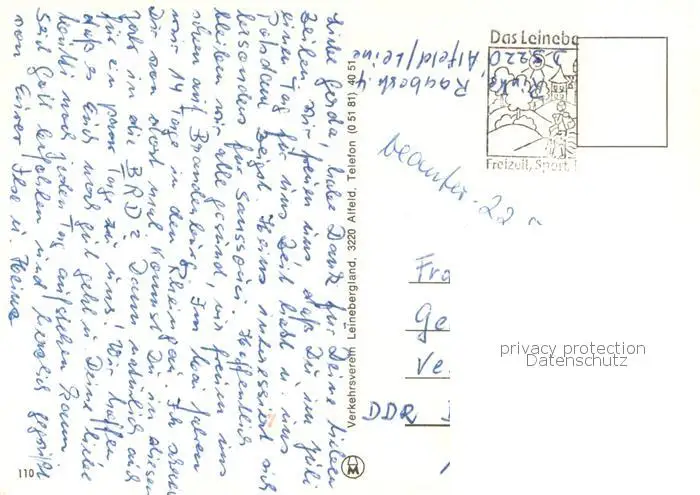 Liebe Gerda, habe Dank für Deine lieben
Zeilen. Wir freuen uns, daß Du im Juli
einen Tag für uns Zeit hast u. uns
Potsdam zeigst. Heinz interessiert sich
besonders für Sanssouci. Hoffentlich
bleiben wir alle gesund, wir freuen uns
schon auf Brandenburg. Im Mai fahren
wir 14 Tage in den Rheingau. Ich
Dir von dort mal. Kommst Du in diesem
Jahr in die BRD? Dann natürlich auch
für ein paar Tage zu uns! Wir hoffen,
daß es Euch noch gut geht u. Deine liebe
Mutti noch jeden Tag aufstehen kann.
Seid Gott befohlen und herzlich gegrüßt
von Eurer Ilse u. Heinz
110
Verkehrsverein Leinebergland, 3220 Alfeld, Telefon (0 51 81) 40 51
M
Rabesk. 4
D 3220 Alfeld/Leine
Das Leinebe
Freizeit, Sport
beantw. 22
Fra
Ge
Ve
DDR
privacy protection
Datenschutz